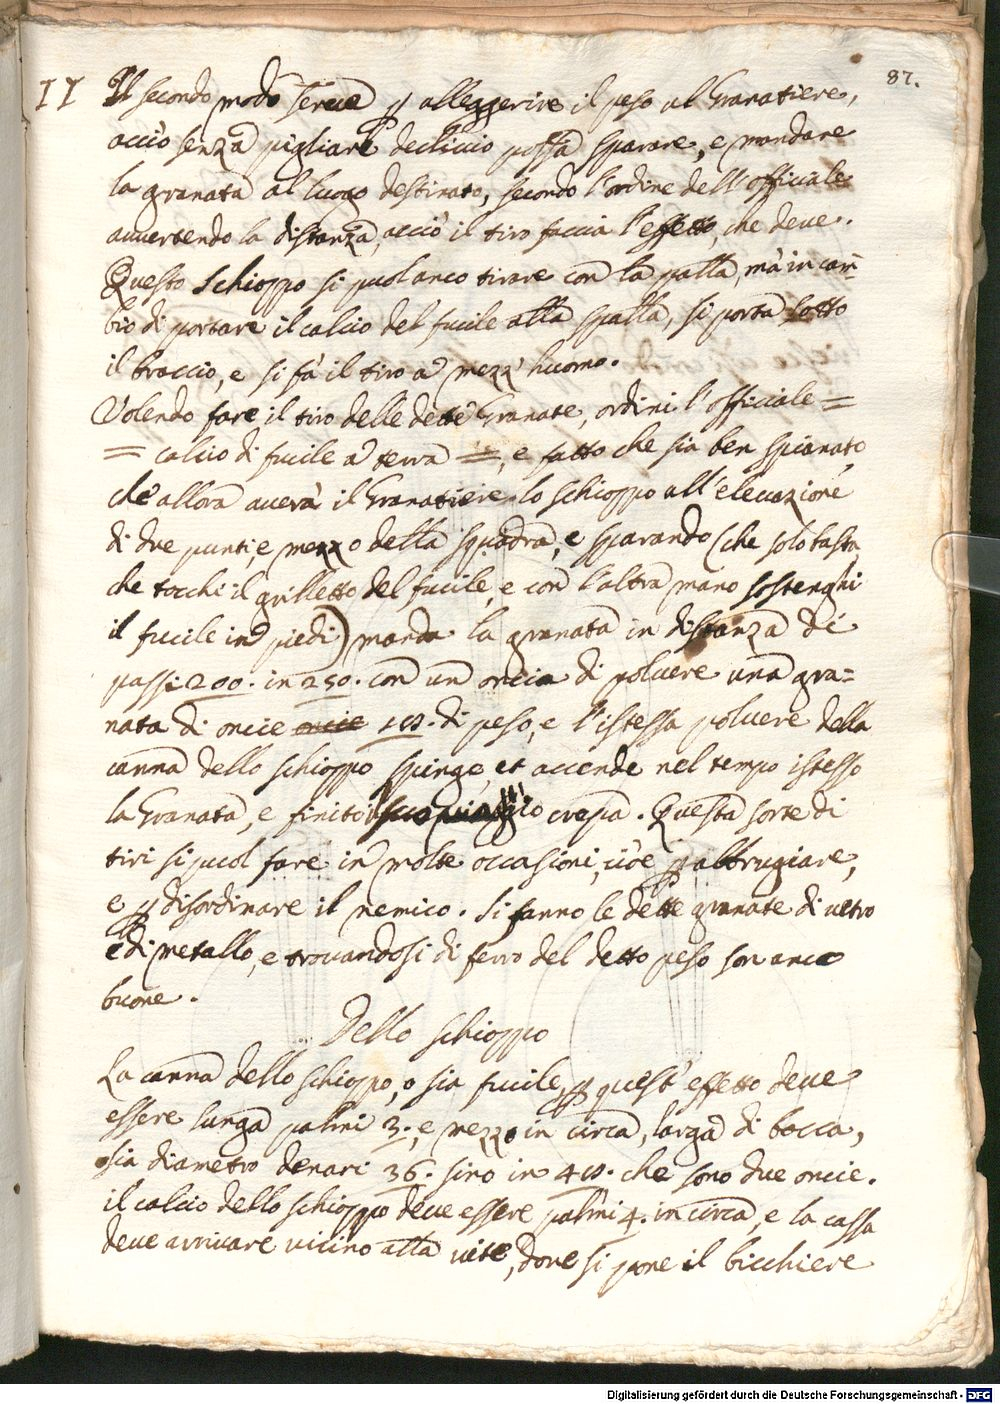 87.
II Il secondo modo serue p alleggerire il peso al Granatiere,
acciò senza pigliare decliuio possa sparare, e mandare
la granata al luogo destinato, secondo l'ordine dell'officiale
auuertendo la distanza, acciò il tiro faccia l'effetto, che deue.
Questo schioppo si puol anco tirare con la palla, mà in cam̄-
bio di portare il calcio del fucile alla spalla, si porta sotto
il braccio, e si fà il tiro a mezz'huomo.
Volendo fare il tiro delle dette Granate, ordini l'officiale =
= calcio di fucile a terra =, e fatto che sia ben spianato,
che allora auerà il Granatiere lo schioppo all'eleuazione
di due punti, e mezzo della squadra, e sparando (che solo basta,
che tocchi il grilletto del fucile, e con l'altra mano sostenghi
il fucile in piedi) manda la granata in distanza di
passi 200. in 250. con un oncia di poluere una gra=
nata di oncie oncie di peso, e l'istessa poluere della
canna dello schioppo spinge, et accende nel tempo istesso
la Granata, e finito il suo uiaggio crepa. Questa sorte di
tiri si puol fare in molte occasioni, cioè p abbrugiare,
e p disordinare il nemico. Si fanno le dette granate di uetro
e di metallo, e trouandosi di ferro del detto peso son anco
buone.
Dello schioppo
La canna dello schioppo, o sia fucile p quest'effetto deue
essere lunga palmi 3., e mezzo in circa, larga di bocca,
sia diametro denari 36. sino in che sono due oncie.
il calcio dello schioppo deue essere palmi 4. in circa, e la cassa
deue arriuare uicino alla uite, doue si pone il bicchiere
Digitalisierung gefördert durch die Deutsche Forschungsgemeinschaft - DFG